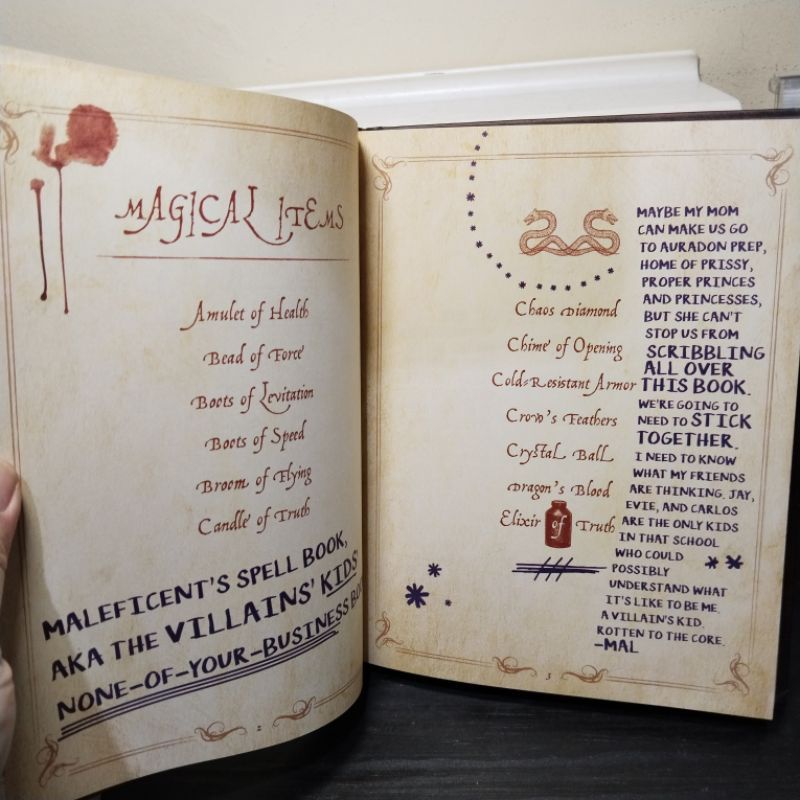 MAGICAL ITEMS
Amulet of Health
Bead of Force
Boots of Levitation
Boots of Speed
Broom of Flying
Candle of Truth
MALEFICENT'S SPELL BOOK,
AKA THE VILLAINS' KIDS'
NONE-OF-YOUR-BUSINESS
2
Chaos Diamond
Chime of Opening
Cold-Resistant Armor
Crow's Feathers
Crystal Ball
Dragon's Blood
Elixir of Truth
MAYBE MY MOM
CAN MAKE US GO
TO AURADON PREP,
HOME OF PRISSY,
PROPER PRINCES
AND PRINCESSES,
BUT SHE CAN'T
STOP US FROM
SCRIBBLING
ALL OVER
THIS BOOK.
WE'RE GOING TO
NEED TO STICK
TOGETHER.
I NEED TO KNOW
WHAT MY FRIENDS
ARE THINKING. JAY,
EVIE, AND CARLOS
ARE THE ONLY KIDS
IN THAT SCHOOL
WHO COULD
POSSIBLY
UNDERSTAND WHAT
IT'S LIKE TO BE ME.
A VILLAIN'S KID.
ROTTEN TO THE CORE.
-MAL
3